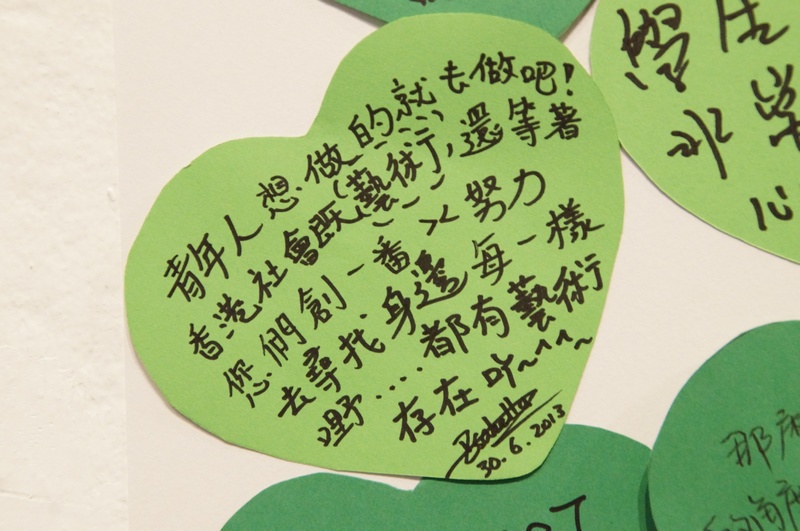 青年人想做的就去做吧!
香港社會既(藝術),還等著
您們創一番 >< 努力
去尋找身邊每一樣
嘢....都有藝術
存在吖~~~~
30.6.2013
生
水
心
那